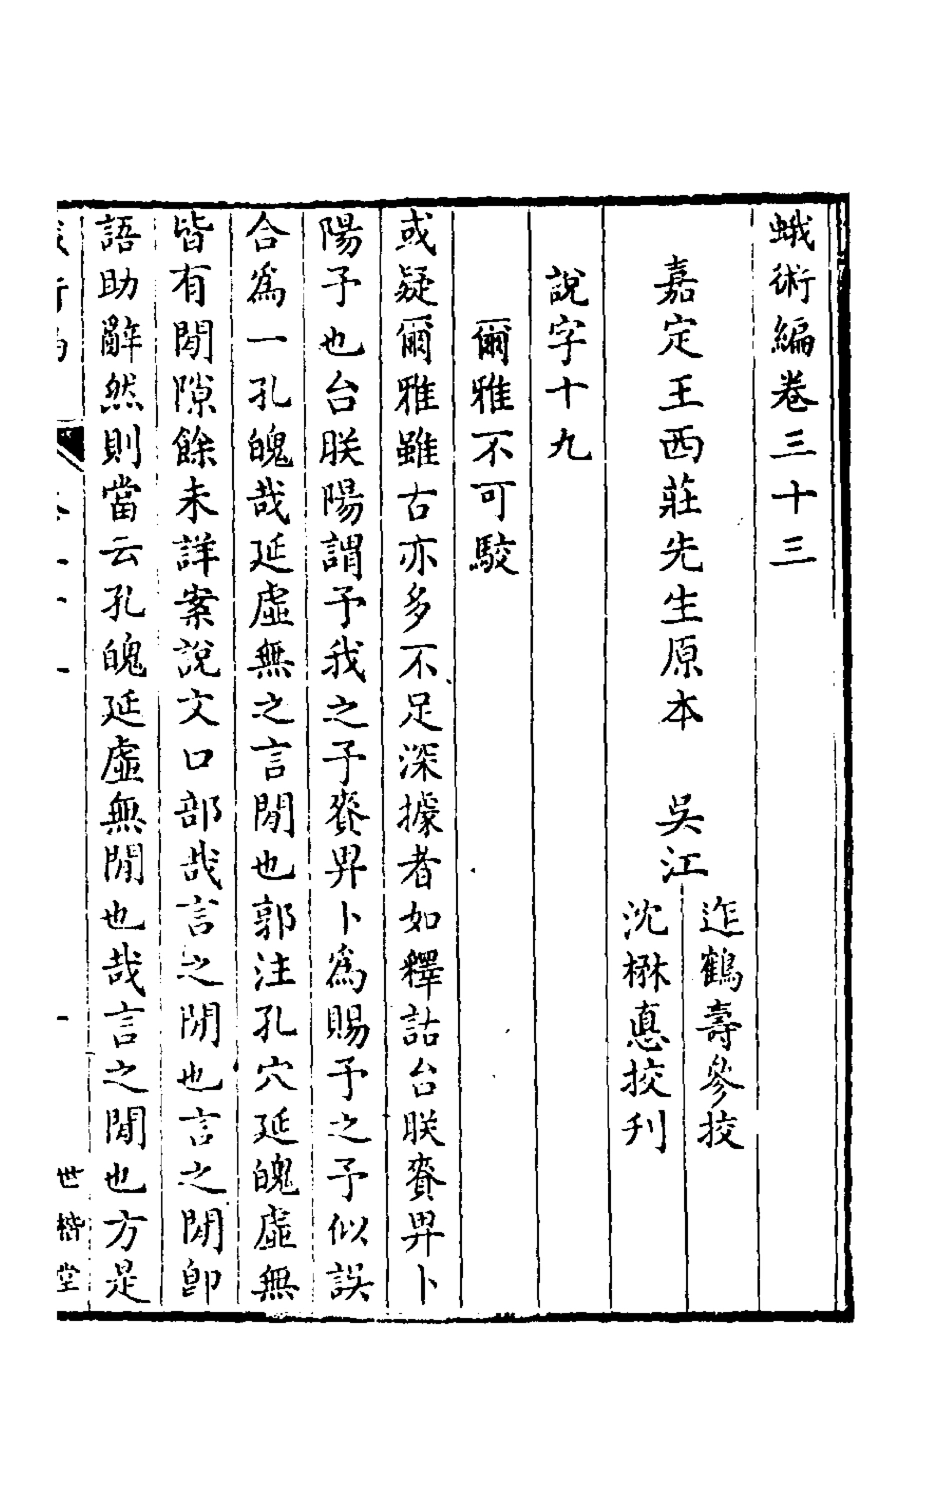 蛾術編卷三十三
嘉定王西莊先生原本　吳江
迮鶴壽參挍
沈楙悳挍刋
說字十九
爾雅不可駮
或疑爾雅雖古亦多不足深據者如釋詁台朕賚畀卜
陽予也台朕陽謂予我之予賚畀卜爲賜予之予似誤
合爲一孔魄哉延虛無之言閒也郭注孔穴延魄虛無
皆有閒隙餘未詳案說文口部哉言之閒也言之閒卽
語助辭然則當云孔魄延虛無閒也哉言之閒也方是
世楷堂